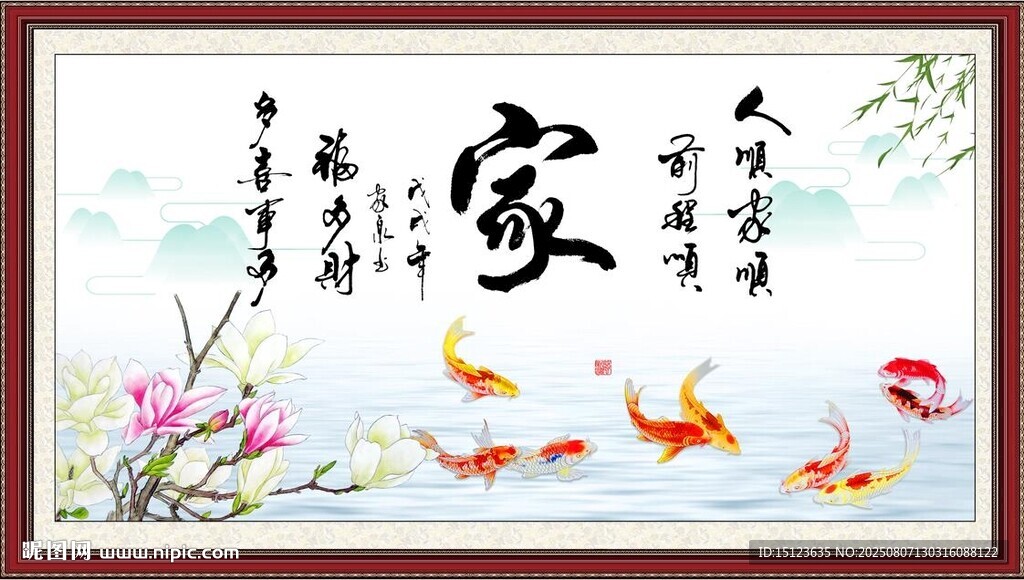 人順家順
前程順
家
戊戌年
家泉书
福多財
多喜事多
昵图网 www.nipic.com
ID:15123635 NO:20250807130316088122